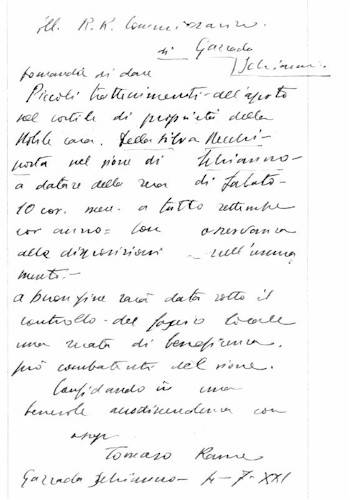 Ill. R.R. Commissario
di Gazzada
Schianno.
domanda di dare
Piccoli trattenimenti all'aperto
nel cortile di proprietà della
Nobile casa. Della Silva
posta nel rione di Schianno
a datare dalla sera di sabato
10 cor. mese a tutto settembre
cor anno con osservanza
alle disposizioni
a buon fine sarà data sotto il
controllo del fascio locale
una serata di beneficenza.
pro combattenti del rione.
Confidando in una
benevole accondiscendenza con
Tomaso
Gazzada Schianno 4-7-XXI